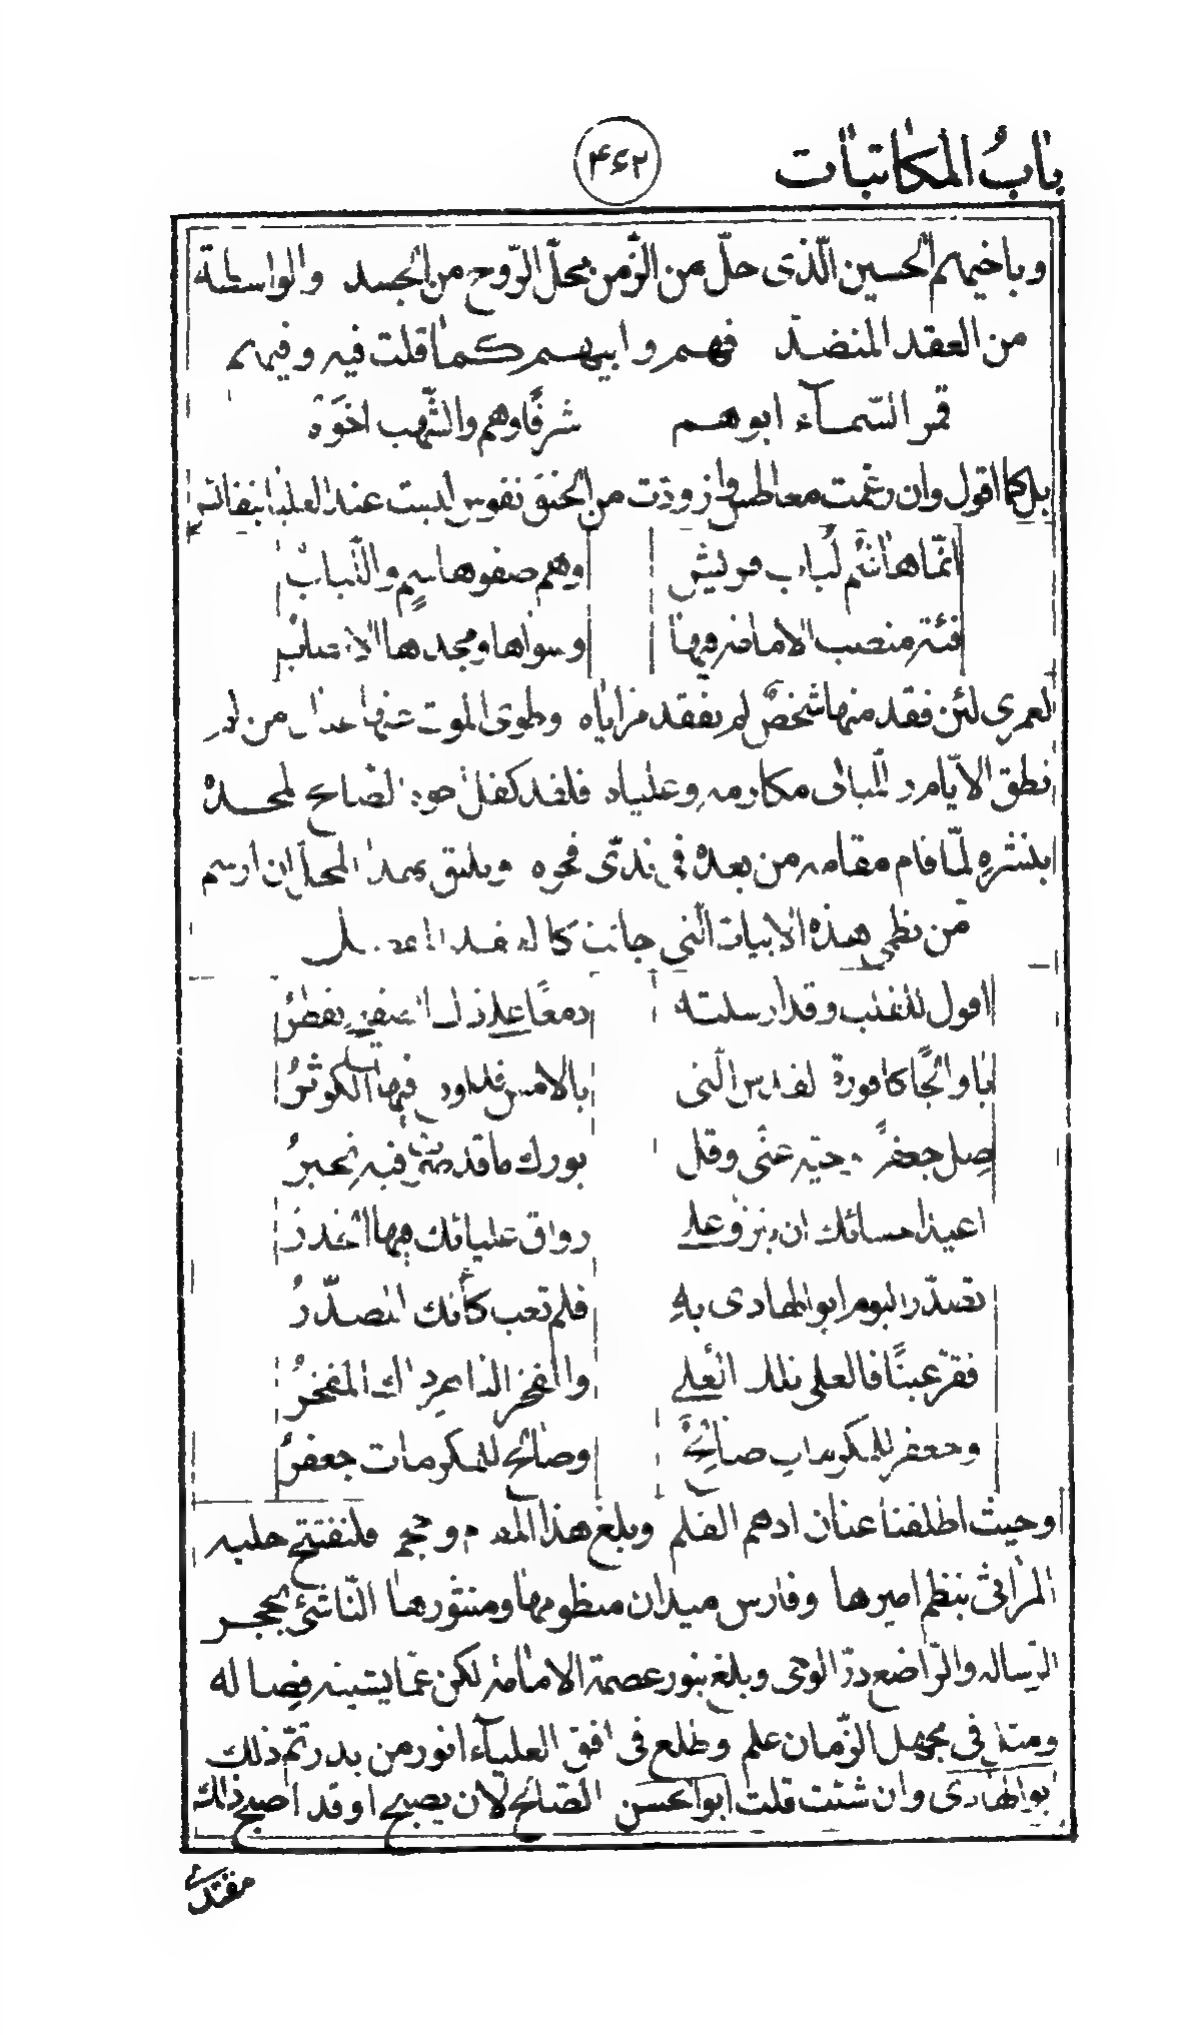 باب المكاتبات
۴۶۲
وباخيهم الحسين الّذى حلّ من الزّمن محلّ الرّوح من الجسد والواسطة
من العقد المنضد فهم وابيهم كما قلت فيه وفيهم
قمر السّمآء ابوهم شرفًا وهم والشّهب اخوة
بل كما اقول وان رغمت معاطس وازوردّت من الحنق نفوس ليست عند العليا بنفائس
انّما هاشم لباب قريش وهم صفوها سم واللّباب
فئة منصب الامامة فيها وسواها ومجدها الانصاب
لعمرى لئن فقد منها شخص لم تفقد مزاياه وطوى الموت عنها من
نطق الايّام و مكارمه وعلياه فلقد كفل الصّالح لمجده
بنشره لمّا قام مقامه من بعده فى ندىّ فخره ويليق بهذا المحل ان ارسم
من نظمى هذه الابيات الّتى جائت كالعقد
اقول للنعش وقد ارسلته دمعًا على ذلك يقطر
يا والجًا كافورة القدس الّتى بالامس فيها الكوثر
صل جعفرًا تحيّة عنّى وقل بورك ما قد فيه تحبر
اعيذ احسانك ان على رواق عليائك فيها
تصدّر اليوم ابو الهادى به فلم تغب كأنك المتصدّر
فقرّ عينًا فالعلى تلك العلى والفخر ذاك المفخر
وجعفر للمكرمات صالح وصالح للمكرمات جعفر
وحيث اطلقنا عنان ادهم القلم وبلغ هذا وحجم فلنفتتح حلبة
المراثى بنظم اميرها وفارس ميدان منظومها ومنثورها النّاشئ بحجر
الرّسالة والرّاضع درّ الوحى وبلغ بنور عصمة الامامة لكن عمّا يشينه فصاله
ومثله فى مجهل الزّمان علم وطلع فى افق العليآء انور من بدر تمّ ذلك
ابوالهادى وان شئت قلت ابوالحسن الصّالح لان يصبح اوقد اصبح ذلك
مقتدى